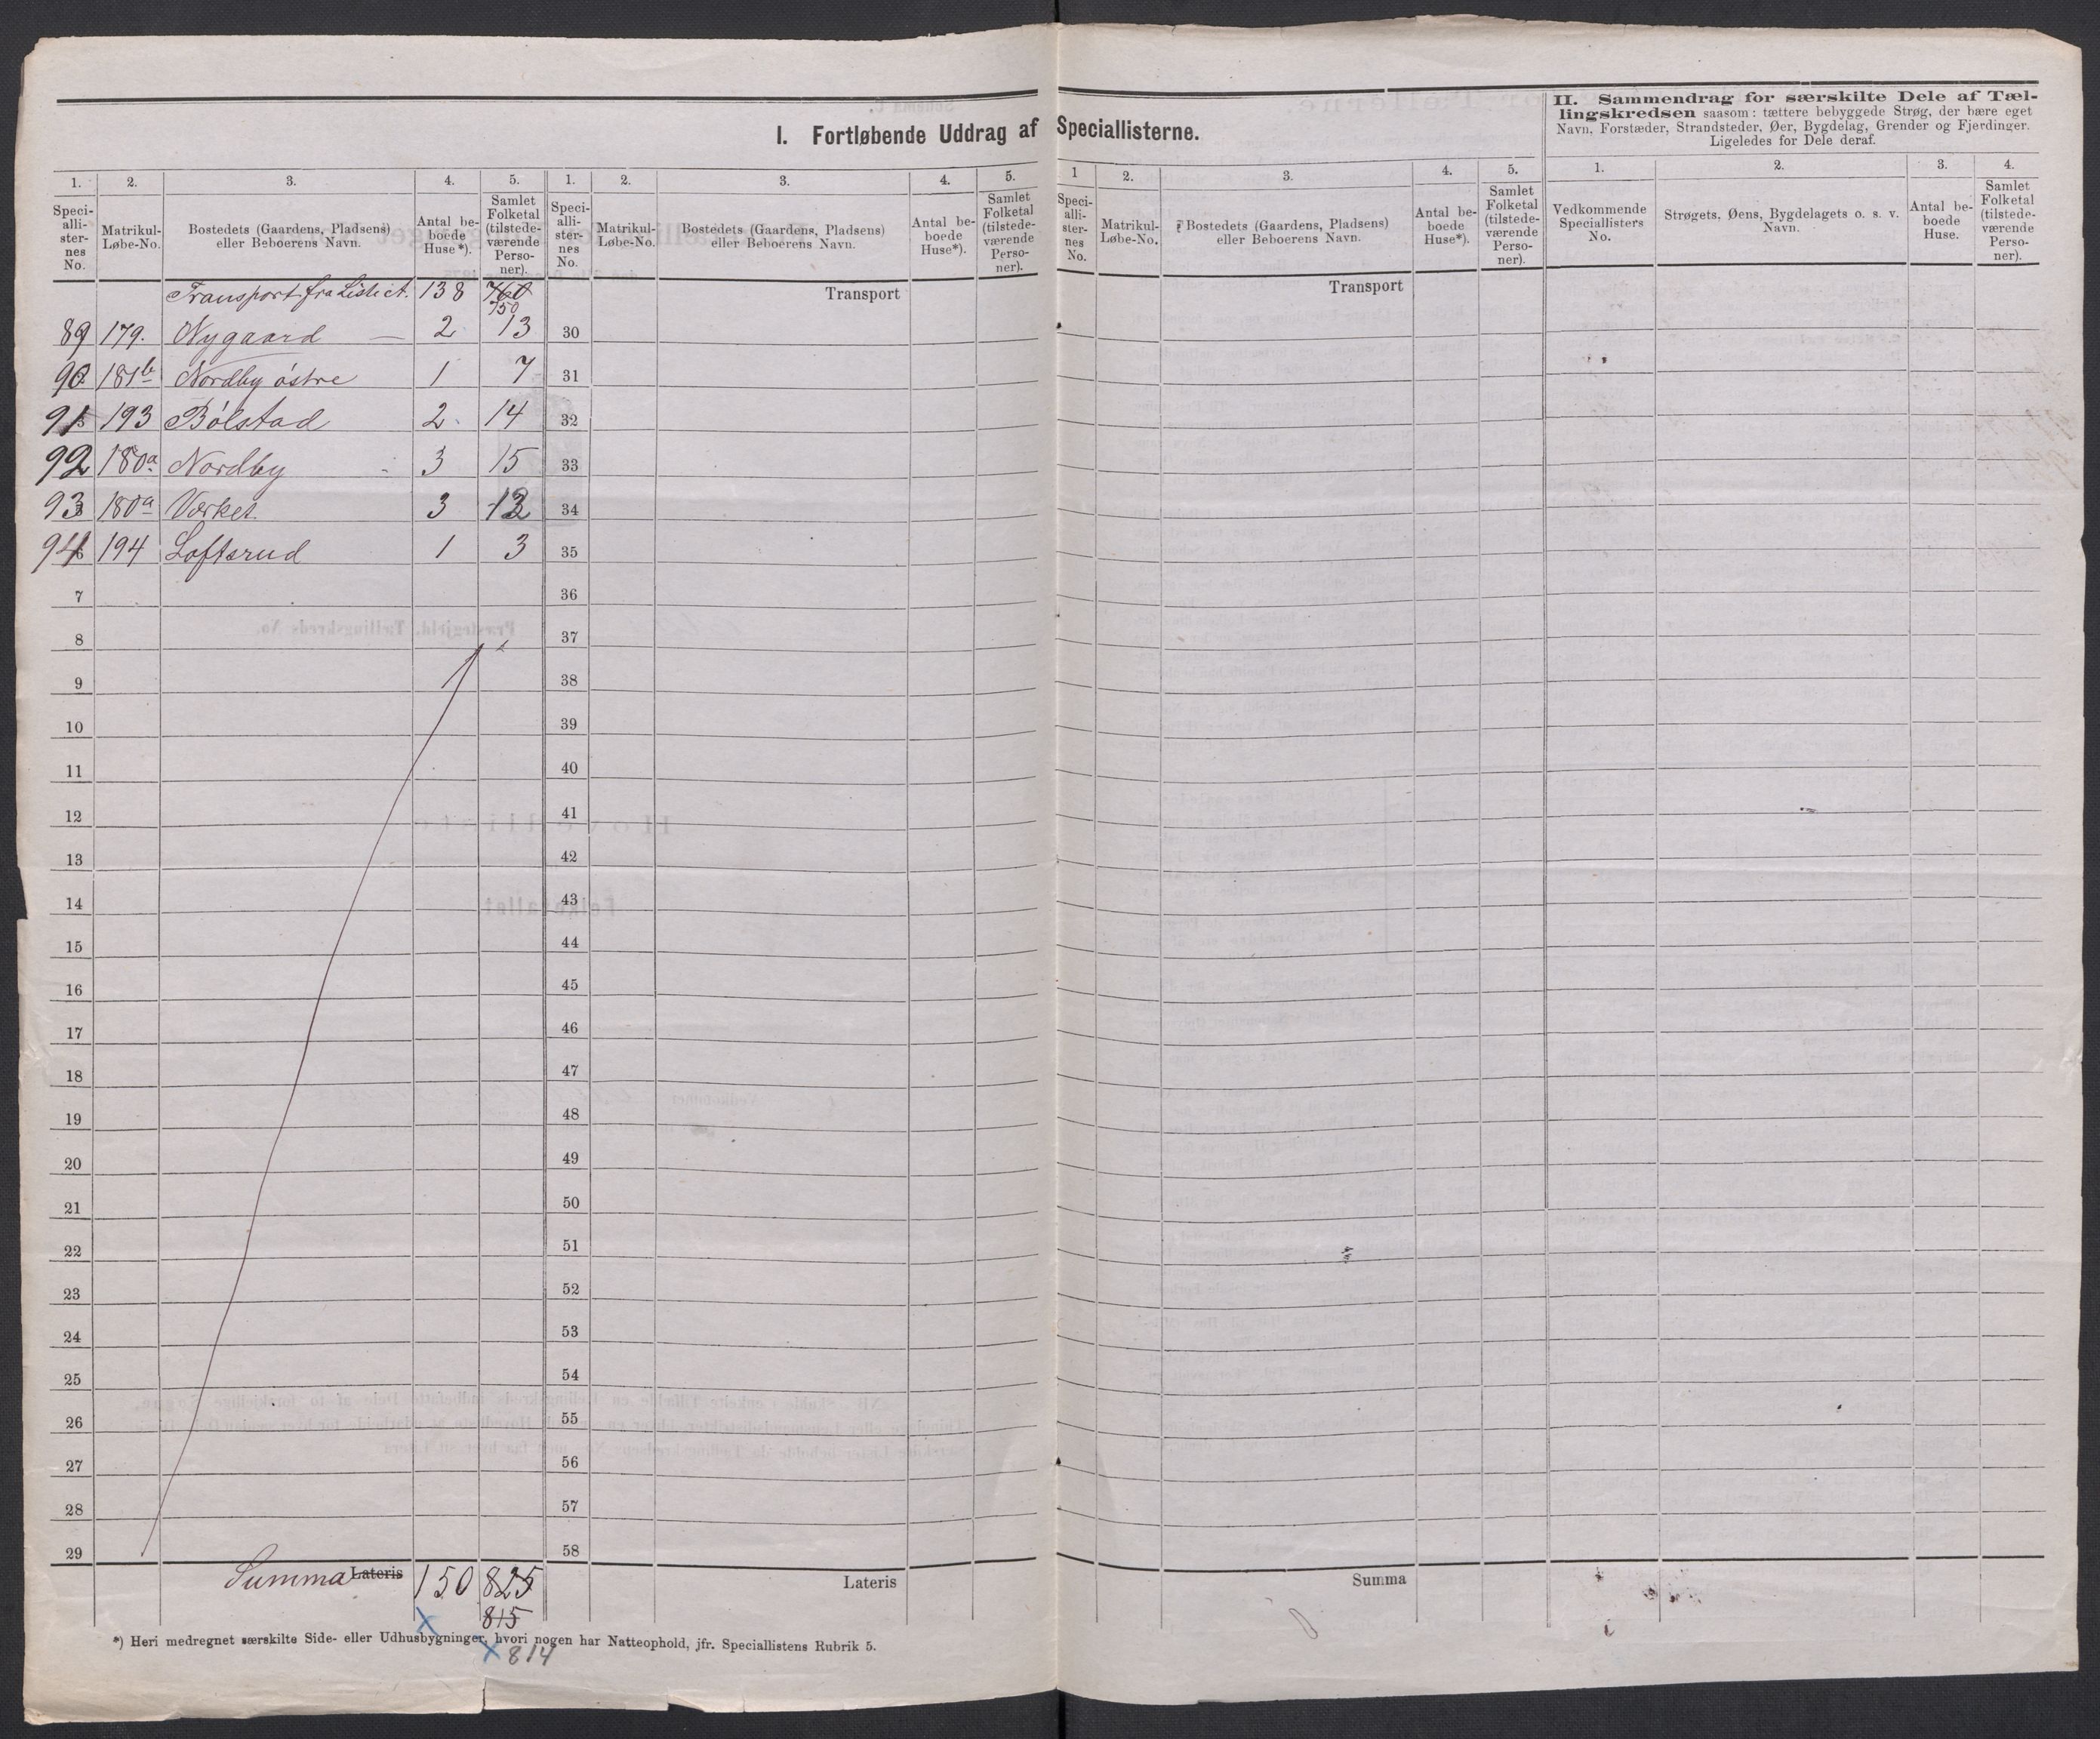 I. Fortløbende Uddrag af Speciallisterne.
II. Sammendrag for særskilte Dele af Tæl-
lingskredsen saasom: tættere bebyggede Strøg, der bære eget
Navn, Forstæder, Strandsteder, Øer, Bygdelag, Grender og Fjerdinger.
Ligeledes for Dele deraf.
1. 2. 3. 4. 5. 1. 2. 3. 4. 5. 1 2. 3. 4. 5. 1. 2. 3. 4.
Speciallisternes No. Matrikul-Løbe-No. Bostedets (Gaardens, Pladsens) eller Beboerens Navn. Antal beboede Huse*). Samlet Folketal (tilstedeværende Personer).
Speciallisternes No. Matrikul-Løbe-No. Bostedets (Gaardens, Pladsens) eller Beboerens Navn. Antal beboede Huse*). Samlet Folketal (tilstedeværende Personer).
Speciallisternes No. Matrikul-Løbe-No. Bostedets (Gaardens, Pladsens) eller Beboerens Navn. Antal beboede Huse*). Samlet Folketal (tilstedeværende Personer).
Vedkommende Speciallisters No. Strøgets, Øens, Bygdelagets o. s. v. Navn. Antal beboede Huse. Samlet Folketal (tilstedeværende Personer).
Transport fra Liste 138 760 Transport Transport
750
89 179. Nygaard 2 13 30
90 181b Nordby østre 1 7 31
91 193 Bølstad 2 14 32
92 180a Nordby 3 15 33
93 180a Værket 3 12 34
94 194 Loftsrud 1 3 35
7 36
8 37
9 38
10 39
11 40
12 41
13 42
14 43
15 44
16 45
17 46
18 47
19 48
20 49
21 50
22 51
23 52
24 53
25 54
26 55
27 56
28 57
29 58
Summa Lateris 150 825 Lateris Summa
815
*) Heri medregnet særskilte Side- eller Udhusbygninger, hvori nogen har Natteophold, jfr. Speciallistens Rubrik 5.
x 814